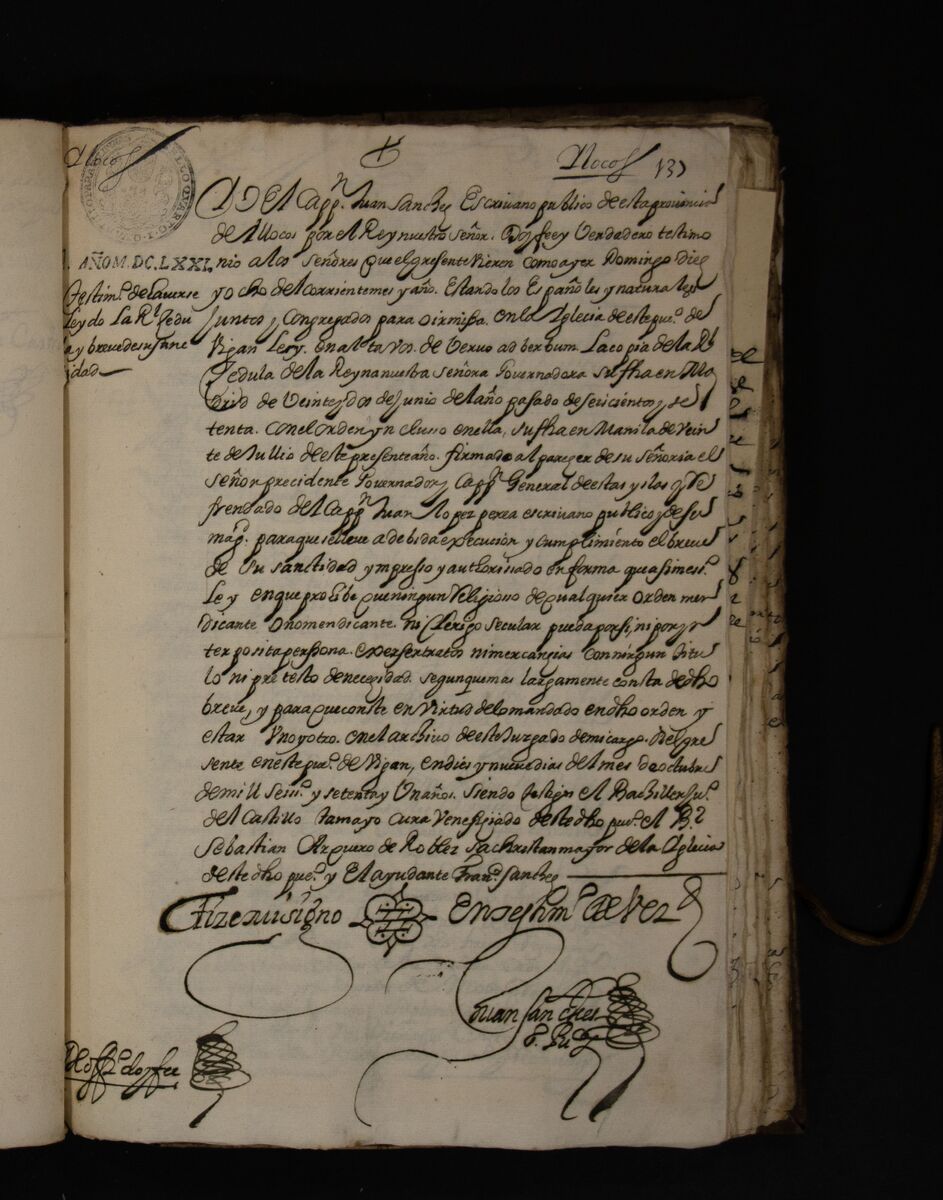 Ylocos
Ylocos 137
AÑO M.DC.LXXI.
Testimo. de haverse
leydo La Rl. Zedu
la y breve de su sanc
tidad
Yo El Cappn. Juan sanchez Escrivano publico de esta provincia
de Yllocos por el Rey nuestro señor. Doy fee y Verdadero testimo
nio a los señores que el presente Vieren como ayer Domingo diez
y ocho del corriente mes y año. Estando los Españoles y naturales
Juntos y Congregados para oir missa. en la Yglecia de este pueo. de
Vigan Ley. en alta vos. de Vervo ad berbum. La copia de la Rl
Zedula de la Reyna nuestra señora Governadora su fha en Ma
drid de Veinte y dos de Junio del año pasado de seiscientos y se
tenta. con el orden yncluso en ella, su fha en Manila de vein
te de Jullio de este presente año. firmado al pareçer de su señoria el
señor precidente Governador y Cappn General de estas yslas y Re
frendado del Cappn Juan lopez perea escrivano publico y de su
magd. para que se lleve a debida execucion y cumplimiento el breve
de su santidad ympresso y authorissado en forma que asimesmo.
Ley en que proibe que ningun Religiosso de qualquier orden men
dicante o no mendicante. ni Clerigo secular pueda por si, ni por yn
terposita perssona. exerser tratos ni mercançias con ningun titu
lo ni pretesto de necezidad. segun que mas largamente consta de dho
breve, y para que conste en Virtud de lo mandado en dho orden y
estar Uno y otro. en el archivo de este Jurgado de mi cargo. Di el pre
sente en este pueo. de Vigan, en dies y nueve dias del mes de octubre
de mill seiso. y setenta y Un años. siendo testigos el Bachiller Juo.
del Castillo tamayo Cura Venefisiado de este dho pueo. el Br
sebastian Arquero de Robles sachristan mayor de la Yglecia
de este dho pueo. y El ayudante Frano. sanchez
Hize mi signo En testimo. de Verd
Juan sanchez
doy fee